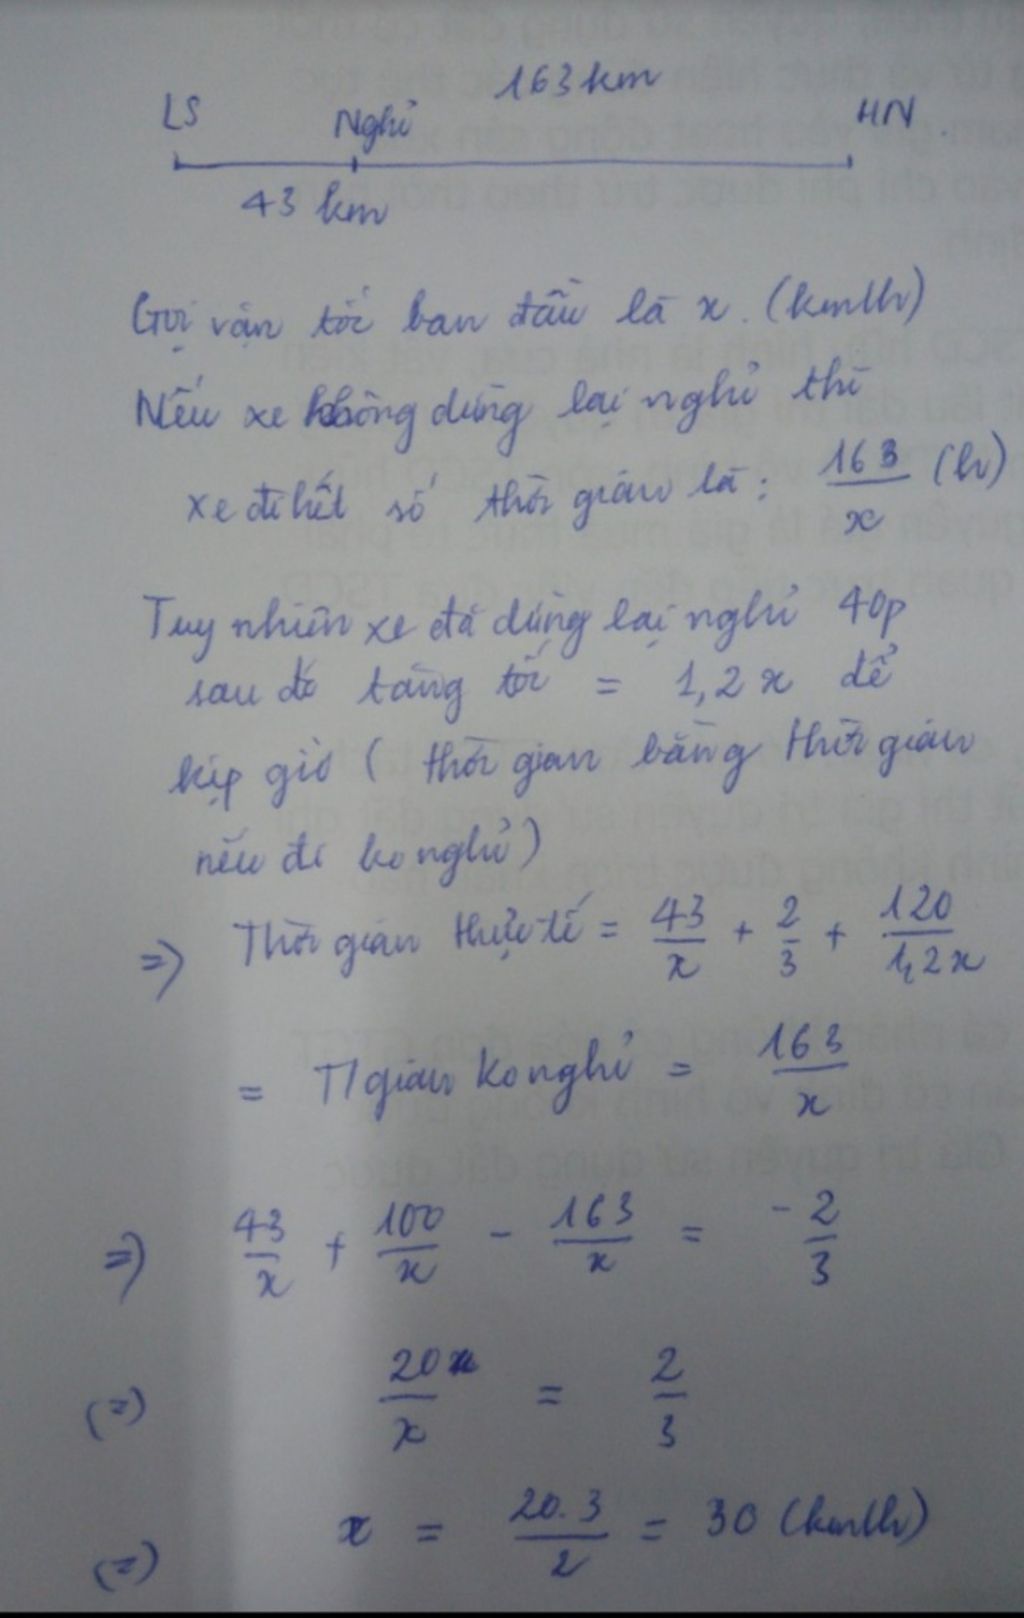 163km
LS Nghỉ HN
43 km
Gọi vận tốc ban đầu là x. (km/h)
Nếu xe không dừng lại nghỉ thì
xe đi hết số thời gian là: 163/x (h)
Tuy nhiên xe đã dừng lại nghỉ 40p
sau đó tăng tốc = 1,2x để
kịp giờ (thời gian bằng thời gian
nếu đi ko nghỉ)
=> Thời gian thực tế = 43/x + 2/3 + 120/1,2x
= T/gian ko nghỉ = 163/x
=> 43/x + 100/x - 163/x = -2/3
(=) 20/x = 2/3
(=) x = 20.3/2 = 30 (km/h)